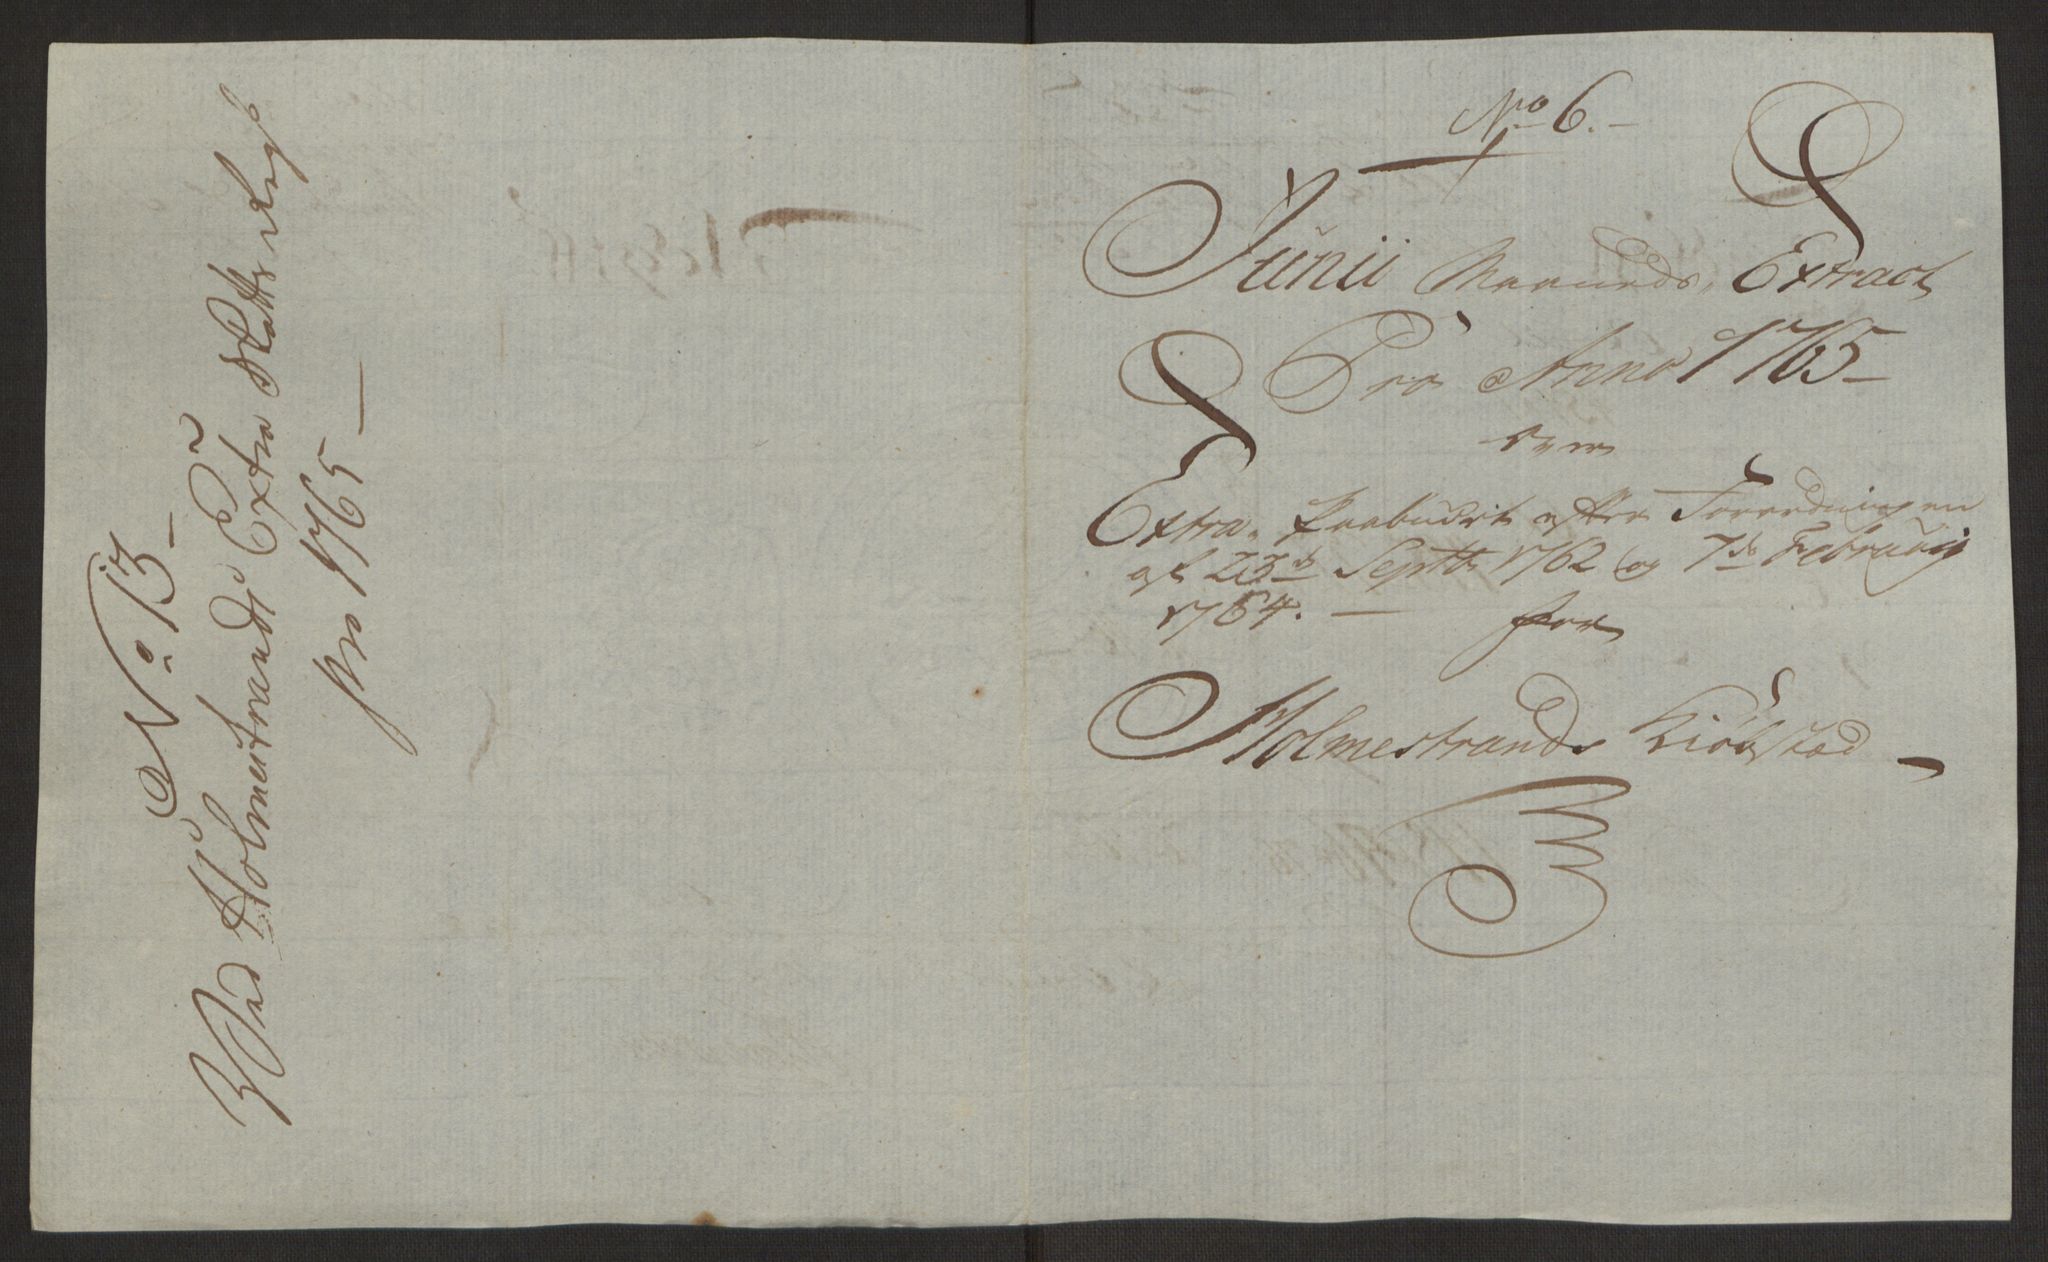 No 13
Ved Holmestrands Extra Skatts Regsk
pro 1765
No 6.
Junii Maaneds Extract
Pro Anno 1765
over
Extra Paabudet efter Forordningen
af 23de Septbr 1762 og 7de Februarij
1764. for
Holmestrands Kiöbsted